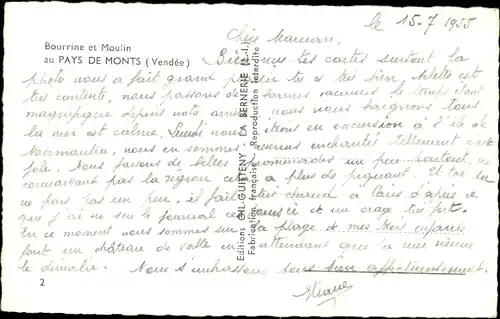 Bourrine et Moulin
au PAYS DE MONTS (Vendée)
le 15-7 1955
Chère Maman,
Bien reçu tes cartes surtout la
photo nous a fait grand plaisir tu es très bien, Arlette est
très contente, nous passons de bonnes vacances le temps est
magnifique depuis notre arrivée, nous nous baignons tous
la mer est calme. Lundi nous étions en excursion à l'île de
Noirmoutier, nous en sommes revenus enchantés tellement c'est
joli. Nous faisons de belles promenades un peu partout, en
connaissant pas la région cela a plus de piquant. Et toi
ne pars pas un peu, il fait très chaud à Paris d'après ce
que j'ai lu sur le journal et un orage très fort.
En ce moment nous sommes sur la plage et mes trois enfants
font un château de sable en attendant que la mer vienne
le démolir. Nous t'embrassons tous bien affectueusement.
Eliane
2
Editions GABY-GUITTENY - LA BERNERIE (L.-I.)
Fabrication Française - Reproduction interdite